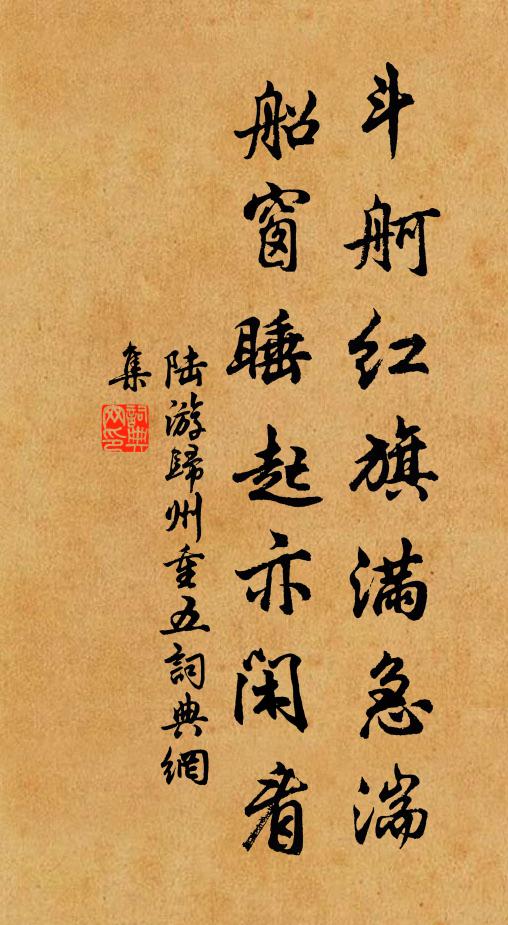 斗舸红旗满急湍
船窗睡起亦闲看
陆游归州重五詞典網
集
詞典
网印